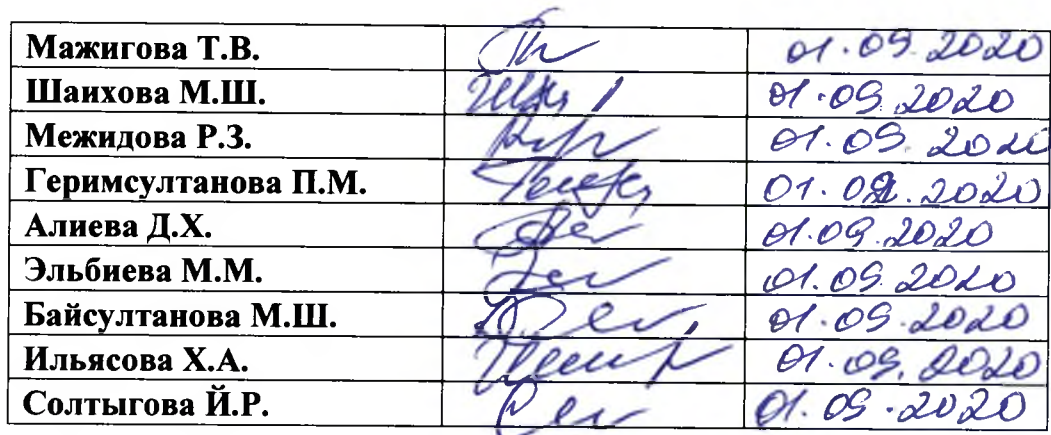 Мажигова Т.В. 01.09.2020
Шаихова М.Ш. 01.09.2020
Межидова Р.З. 01.09.2020
Геримсултанова П.М. 01.09.2020
Алиева Д.Х. 01.09.2020
Эльбиева М.М. 01.09.2020
Байсултанова М.Ш. 01.09.2020
Ильясова Х.А. 01.09.2020
Солтыгова Й.Р. 01.09.2020